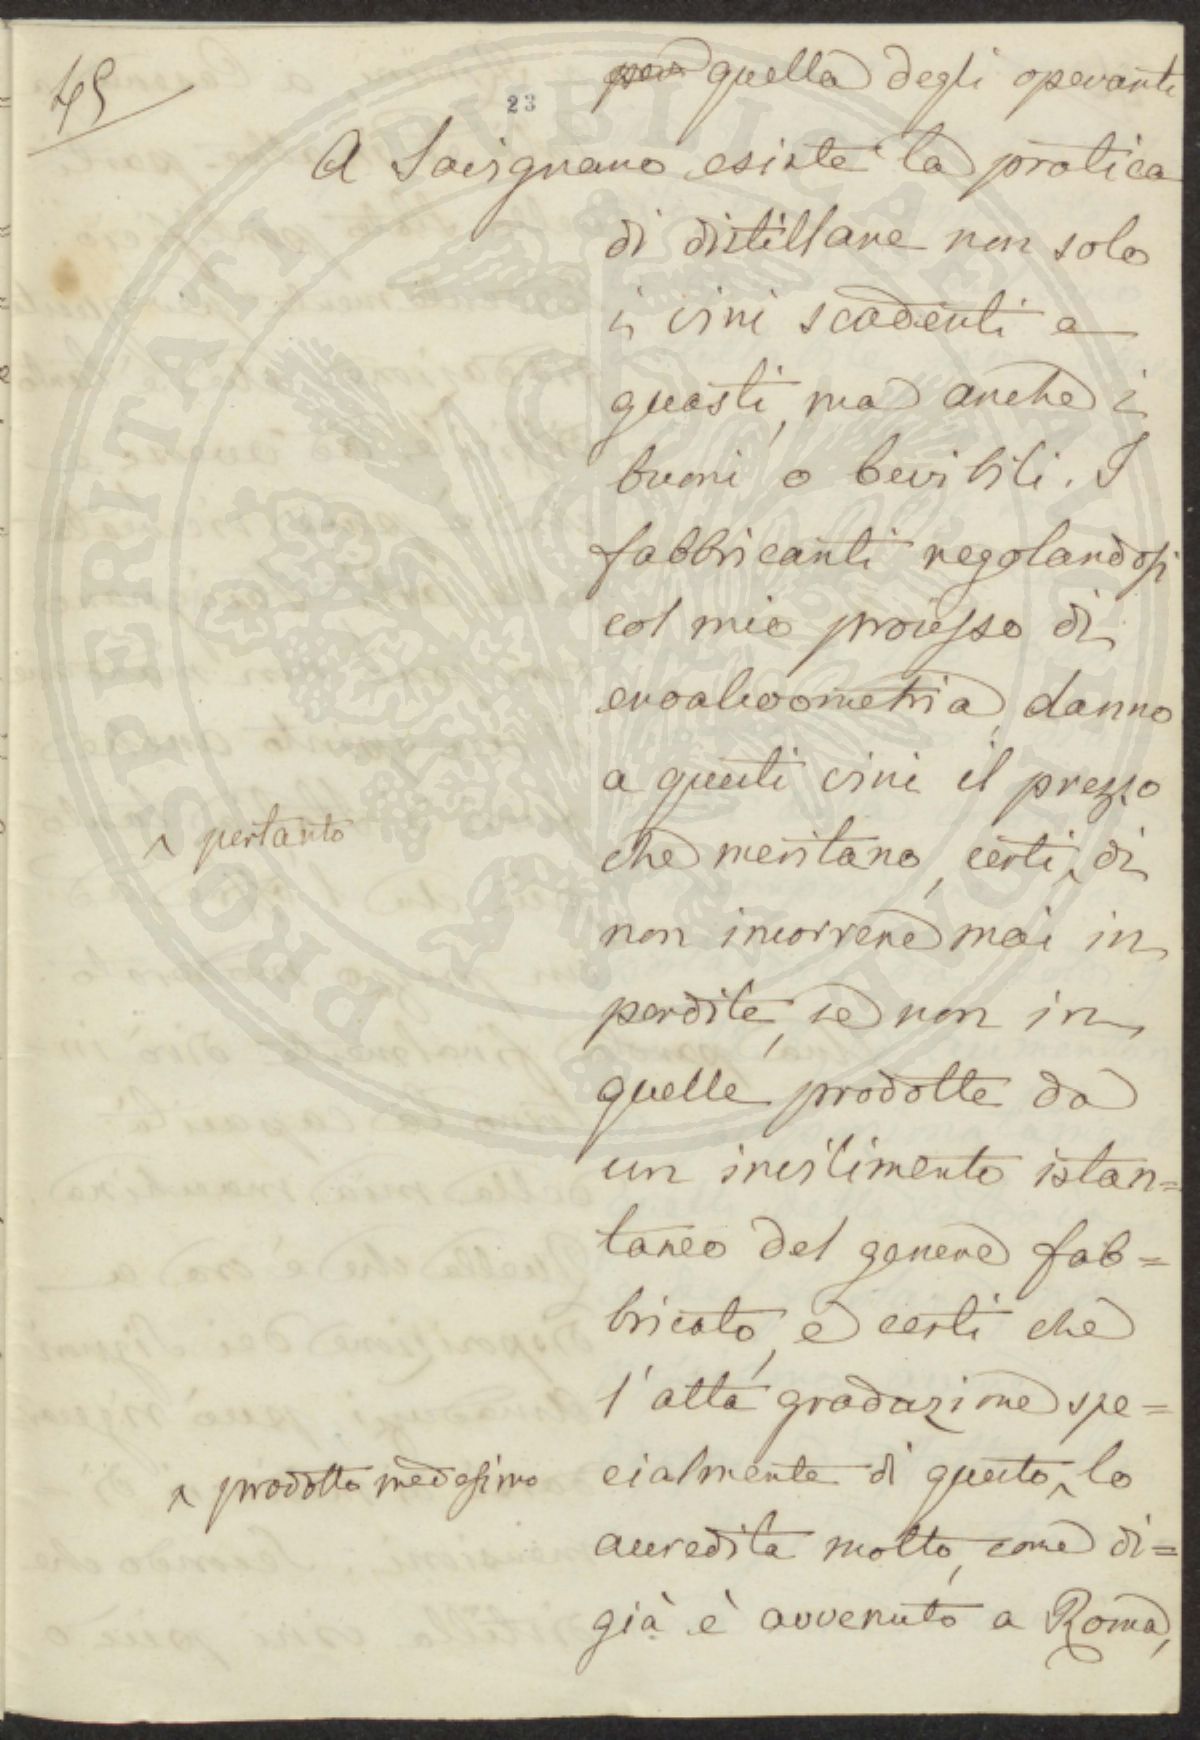 45
23
per quella degli operanti
A Savignano esiste la pratica
di distillare non solo
i vini scadenti e
guasti, ma anche i
buoni o bevibili. I
fabbricanti regolandosi
col mio processo di
enoalcoometria, danno
a questi vini il prezzo
che meritano, certi ^ di
^ pertanto
non incorrere mai in
perdite, se non in
quelle prodotte da
un invilimento istan=
taneo del genere fab=
bricato, e certi che
l'alta gradazione spe=
cialmente di questo ^ lo
^ prodotto medesimo
accredita molto, come di=
già è avvenuto a Roma,
PROSPERITATI PUBLICAE